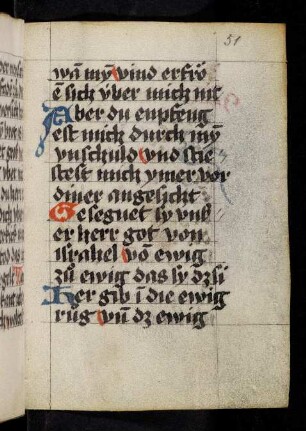 51
wā mȳ vind erfrö
ē sich v̈ber mich nit
Aber du enpfeng
est mich durch mȳ
vnschuld vnd stie
test mich ymer vor
diner angesicht
Gesegnet sy vns
er herr got von
israhel vō ewig
zů ewig das sy dz sÿ
Her gib ī die ewig
růg vn̄ dz ewig